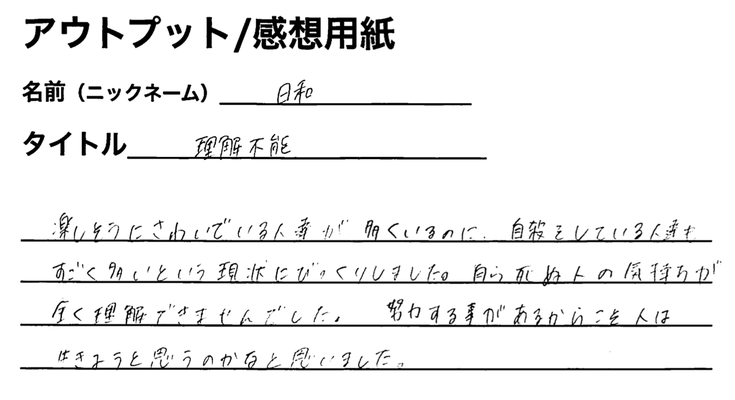 アウトプット/感想用紙
名前（ニックネーム） 日和
タイトル 理解不能
楽しそうにさわいでいる人達が多くいるのに、自殺をしている人達も
すごく多いという現状にびっくりしました。自ら死ぬ人の気持ちが
全く理解できませんでした。努力する事があるからこそ人は
生きようと思うのかなと思いました。